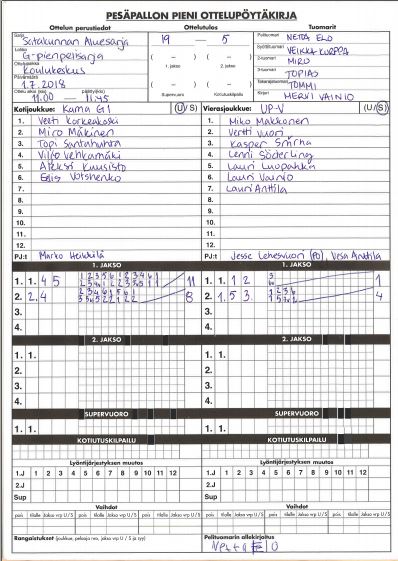 PESÄPALLON PIENI OTTELUPÖYTÄKIRJA
Ottelun perustiedot Ottelutulos Tuomarit
Sarja Satakunnan Aluesarja
19 – 5
Pelituomari NETTA ELO
Lohko G-pienpelisarja
Syöttötuomari VEIKKA KURPPA
Ottelupaikka Koulukeskus
2-tuomari MIRO
( – ) ( – )
1. jakso 2. jakso
3-tuomari TOPIAS
Päivämäärä 1.7.2018
Takarajatuomari TOMMI
Ottelu alkoi (klo) päättyi (klo)
11.00 – 11:45
( – ) ( – )
Supervuoro Kotiutuskilpailu
Kirjuri MERVI VAINIO
Kotijoukkue: Kama G1 (U/S) Vierasjoukkue: UP-V (U/S)
1. Veeti Korkeakoski 1. Miko Makkonen
2. Miro Mäkinen 2. Vertti Vuori
3. Topi Santahuhta 3. Kasper
4. Viljo Vehkamäki 4. Lenni Söderling
5. Aleksi Kuusisto 5. Lauri Luopahka
6. Eelis 6. Lauri Vainio
7. 7. Lauri Anttila
8. 8.
9. 9.
10. 10.
11. 11.
12. 12.
PJ:t Marko Heikkilä PJ:t Jesse Lehesvuori (PO), Vesa Anttila
1. JAKSO 1. JAKSO
1. 1. 4 5 11 1. 1. 1 2 1
2. 2. 4 8 2. 1. 5 3. 4
3. 3.
4. 4.
2. JAKSO 2. JAKSO
1. 1. 1. 1.
2. 2.
3. 3.
4. 4.
SUPERVUORO SUPERVUORO
1. 1. 1. 1.
KOTIUTUSKILPAILU KOTIUTUSKILPAILU
Lyöntijärjestyksen muutos Lyöntijärjestyksen muutos
1.J 1 2 3 4 5 6 7 8 9 10 11 12 1.J 1 2 3 4 5 6 7 8 9 10 11 12
2.J 2.J
Sup Sup
Vaihdot Vaihdot
pois tilalle Jakso vrp U / S pois tilalle Jakso vrp U / S pois tilalle Jakso vrp U / S pois tilalle Jakso vrp U / S
Rangaistukset (joukkue, pelaaja nro, jakso vrp U / S ja syy) Pelituomarin allekirjoitus